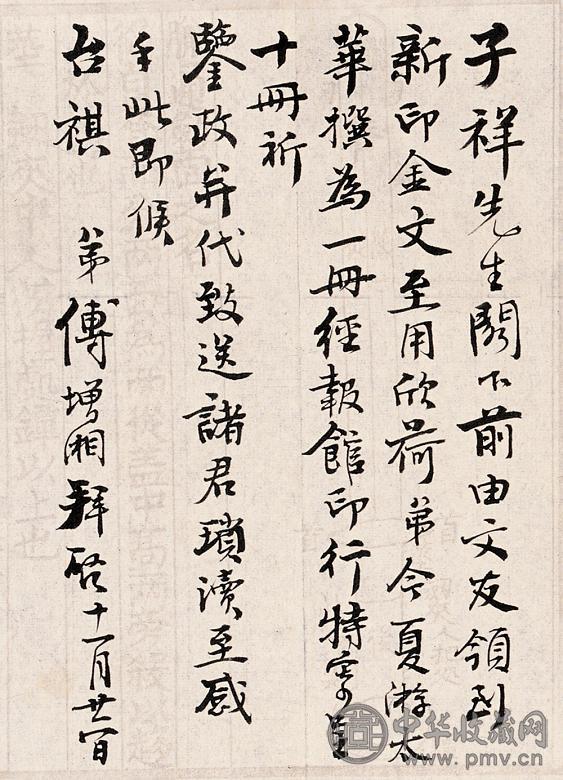 子祥先生閣下前由文友領到
新印金文至用欣荷弟今夏游太
華撰為一冊經報館印行特寄呈
十冊祈
鑒政并代致送諸君瑣瀆至感
手此即候
台祺
弟傅增湘拜啓十一月廿一日
中华收藏网
www.pmv.cn